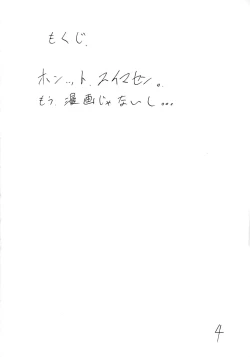 もくじ.
ホン..ット.スイマセン。
もう.漫画じゃないし...
4